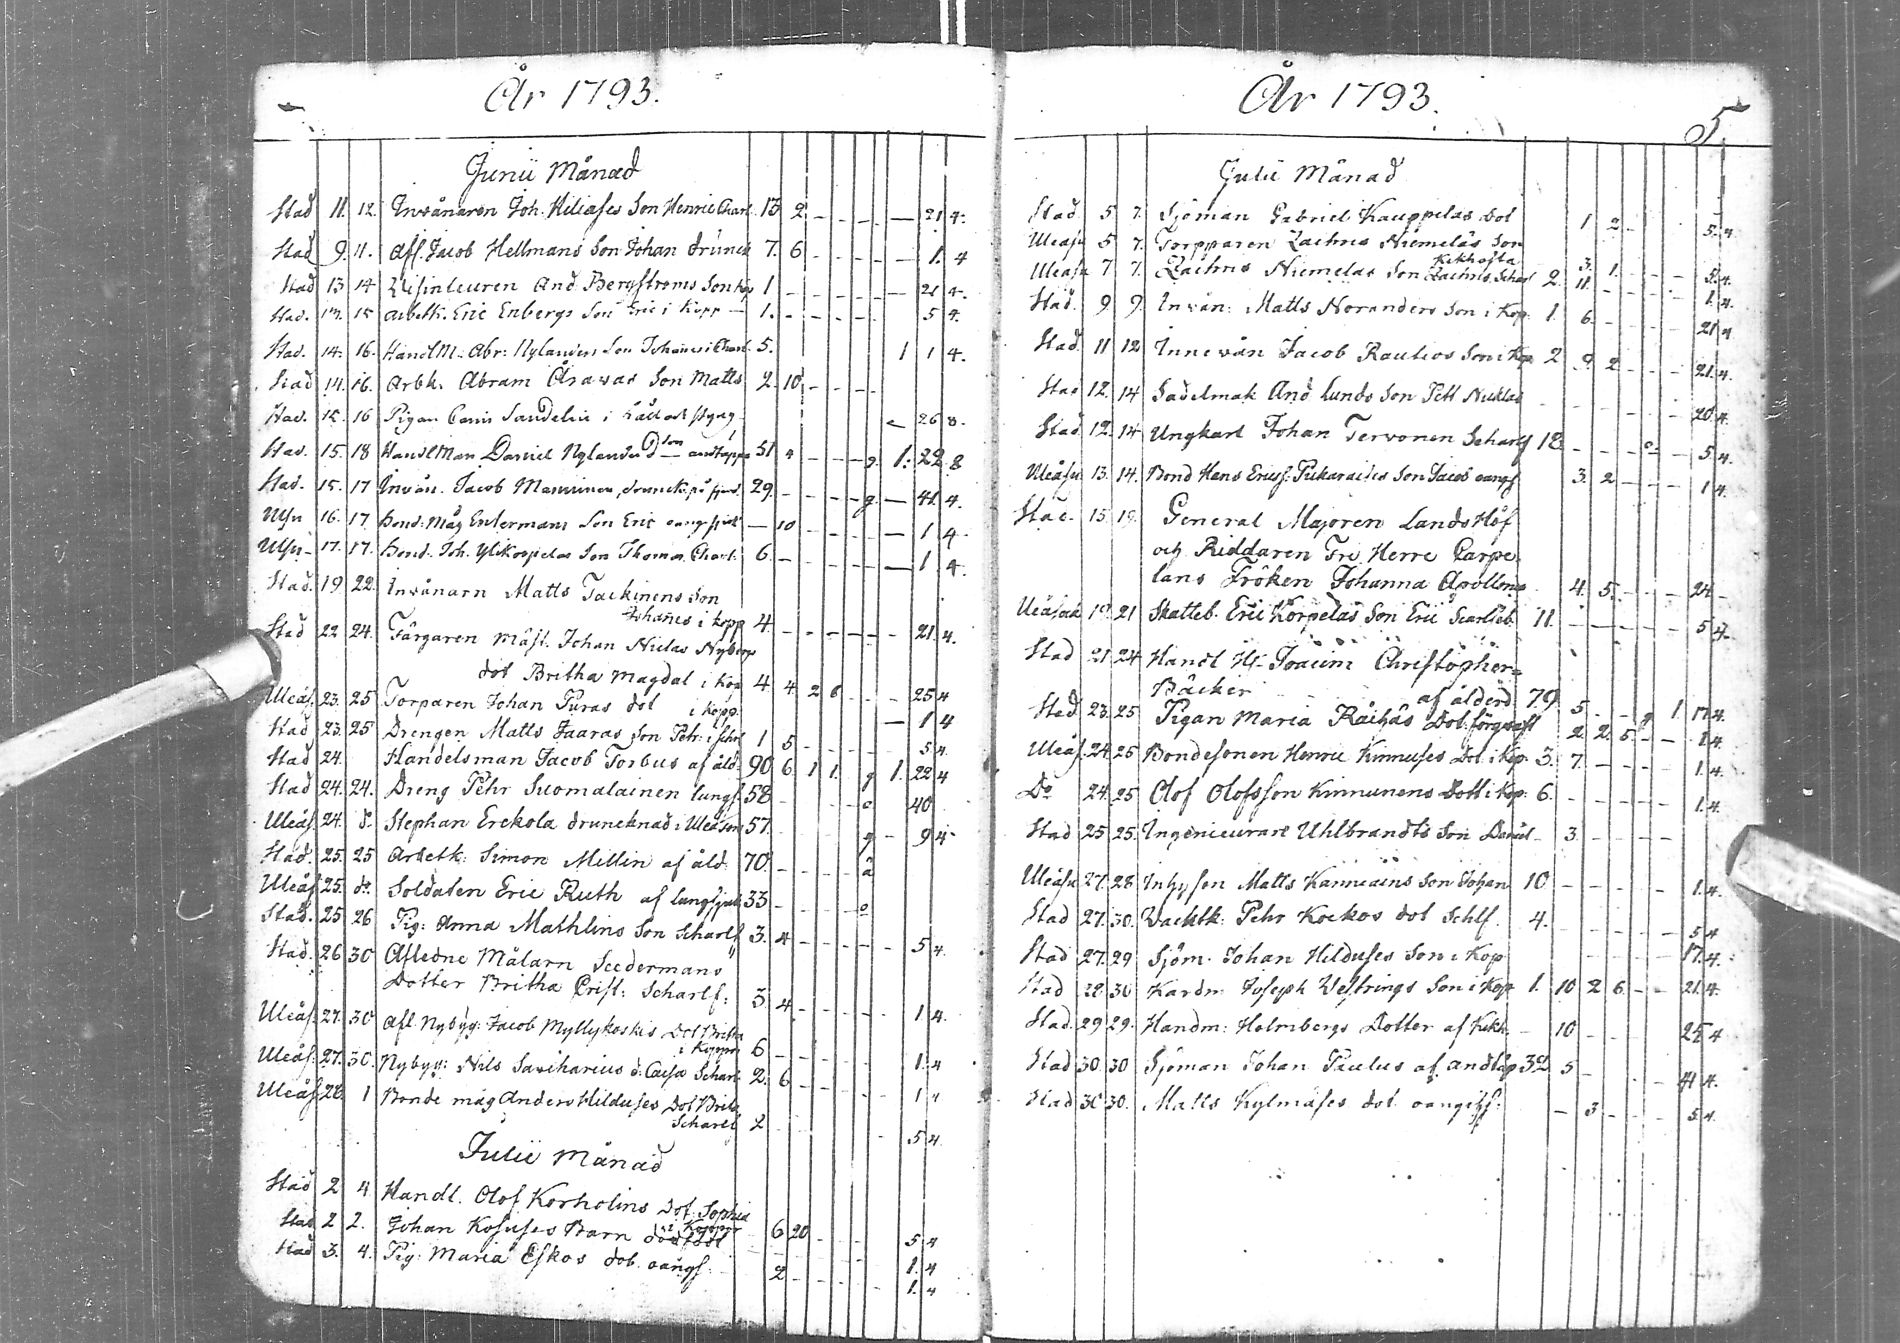 År 1793.
Junii Månad
Stad 11. 12. Invånaren Joh. Heliases Son Henric Charl. 13 2 21 4.
Stad 9. 11. Afl. Jacob Hellmans Son Johan 7. 6 1. 4
Stad 13 14 And Bergströms Son 1 21 4.
Stad. 15 Arbetk. Eric Enbergs Son Eric i Kopp 1. 5 4.
Stad. 14. 16. HandlM. Abr: Nylanders Son Johannes i Charl. 5. 1 1 4.
Stad 14. 16. Arbk. Abram Son Matts 2. 10
Stad. 15. 16 Pigan i 26 8.
Stad. 15. 18 HandlMan Daniel Nylanders son andtäppa 51 4 g. 1. 22 8
Stad. 15. 17 Invån. Jacob Manninen, 29. g. 41. 4.
Ulsu 16. 17. Bond. Måg Entermans Son Eric oang sjuk 10 1 4.
Ulsu 17. 17. Bond. Joh. Ylikorpelas Son Thomas Charl. 6 1 4.
Stad. 19 22. Invånarn Matts Tackinens Son
Johañes i kopp 4 21. 4.
Stad 22 24. Färgaren Mäst. Johan Niclas Nybergs
dot Britha Magdal i Kop 4 4 2 6 25 4
Uleås. 23. 25 Torparen Johan Puras dot i kopp. 1 4
Stad 23. 25 Drengen Matts Jaaras Son Petr: i schrl 1 5 5 4.
Stad 24. Handelsman Jacob Torbus af åld. 90 6 1 1. g 1. 22 4
Stad 24. 24. Dreng Pehr Suomalainen lungs. 58 o 40
Uleås. 24. do Stephan Erckola druncknad i Uleå 57 g 9 4
Stad. 25. 25 Arbetk. Simon Millin af åld. 70. ä
Uleås. 25. do. Soldaten Eric Ruth af lungsjuk 33 o
Stad. 25 26 Pig: Anna Mathlins Son Scharlf 3. 4 5 4.
Stad. 26 30 Afledne Målarn Seedermans
Dotter Britha Crist: Scharlf: 3 4 1 4.
Uleås. 27. 30 Afl. Nybyg: Jacob Myllykoskis Dot Britha
i Koppor 6 1. 4
Uleås. 27. 30. Nybyg: Nils Saviharius d. Caisa Scharl 2. 6 1 4
Uleås. 28. 1 Bonde måg Anders Hilduses Dot Brita
Scharl 2 5 4.
Julii Månad
Stad 2 4 Handl. Olof Korholins Dot Sophia
i Koppor 6 20 5 4
Stad 2 2. Johan Kosuses Barn dödfödt 1. 4
Stad 3. 4. Pig: Maria Eskos dot. oangf. 2 1. 4
År 1793.
5
Julii Månad
Stad 5 7. Sjöman Gabriel Kauppelas Dot 1 2 5. 4
Uleåsu 5 7. Torpparen Zachris Niemeläs Son
Kikhosta 3. 1. 5. 4
Uleåsu 7 7. Zachris Niemelas Son Zachris Scharl 2. 11. 1. 4.
Stad. 9 9. Invån: Matts Noranders Son i Kop. 1. 6. 21 4
Stad. 11 12 Innevån Jacob Rautios Son i Kop 2 9. 2 21. 4.
Stad 12. 14 Sadelmak And Lunds Son Pett Nicklas 20 4.
Stad 12. 14 Ungkarl Johan Tervonen Scharlf 18 o 5 4.
Uleåsu 13. 14. Bond Hans Erics: Pukaraises Son Jacob oangf 3. 2 1 4.
Stad. 15. 19. General Majoren Lands Höf
och Riddaren Fri Herre Carpe-
lans Fröken Johanna Apollona 4. 5. 24
Uleåsuu 19 21 Skatteb. Eric Korpelas Son Eric Scarlfeb. 11. 5 4.
Stad 21. 24 Handl Hr. Joacim Christopher
Bäcker af ålderd 79 5 g 1 17. 4.
Stad 23. 25 Pigan Maria Räihäs Dot. 2 2. 5 1 4.
Uleås. 24. 25 Bondesonen Henric Kinnuses Dot. i Kop. 3. 7. 1. 4.
Do 24. 25 Olof Olofsson Kinnunens Dott i Kop: 6. 1. 4.
Stad 25 25. Ingenieurare Uhlbrandts Son Daniel 3.
Uleåsu 27. 28 Inhysen Matts Kanniains Son Johan 10 1. 4.
Stad 27. 30. Wacktk: Pehr Kockos dot Schlf. 4. 5 4
Stad 27. 29 Sjöm. Johan Hilduses Son i Kop 17. 4.
Stad 28. 30 Kardm Joseph Westrings Son i Kop 1. 10 2 6 21. 4.
Stad 29 29. Handm: Holmbergs Dotter af Kikh. 10 25 4
Stad 30. 30 Sjöman Johan Paulus af andtäp 32 5 41 4.
Stad 30 30. Matts Kylmäses dot oangifs: 3 5 4